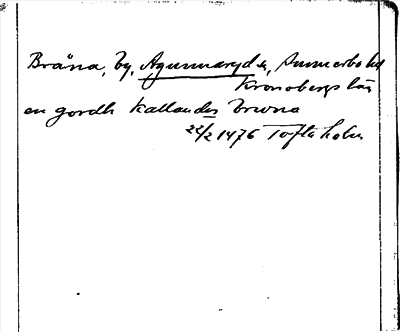 Bråna, by, Agunnaryd s, Sunnerbo hd
Kronobergs län
en gordh kallandes Brwna
22/2 1476 Toftaholm